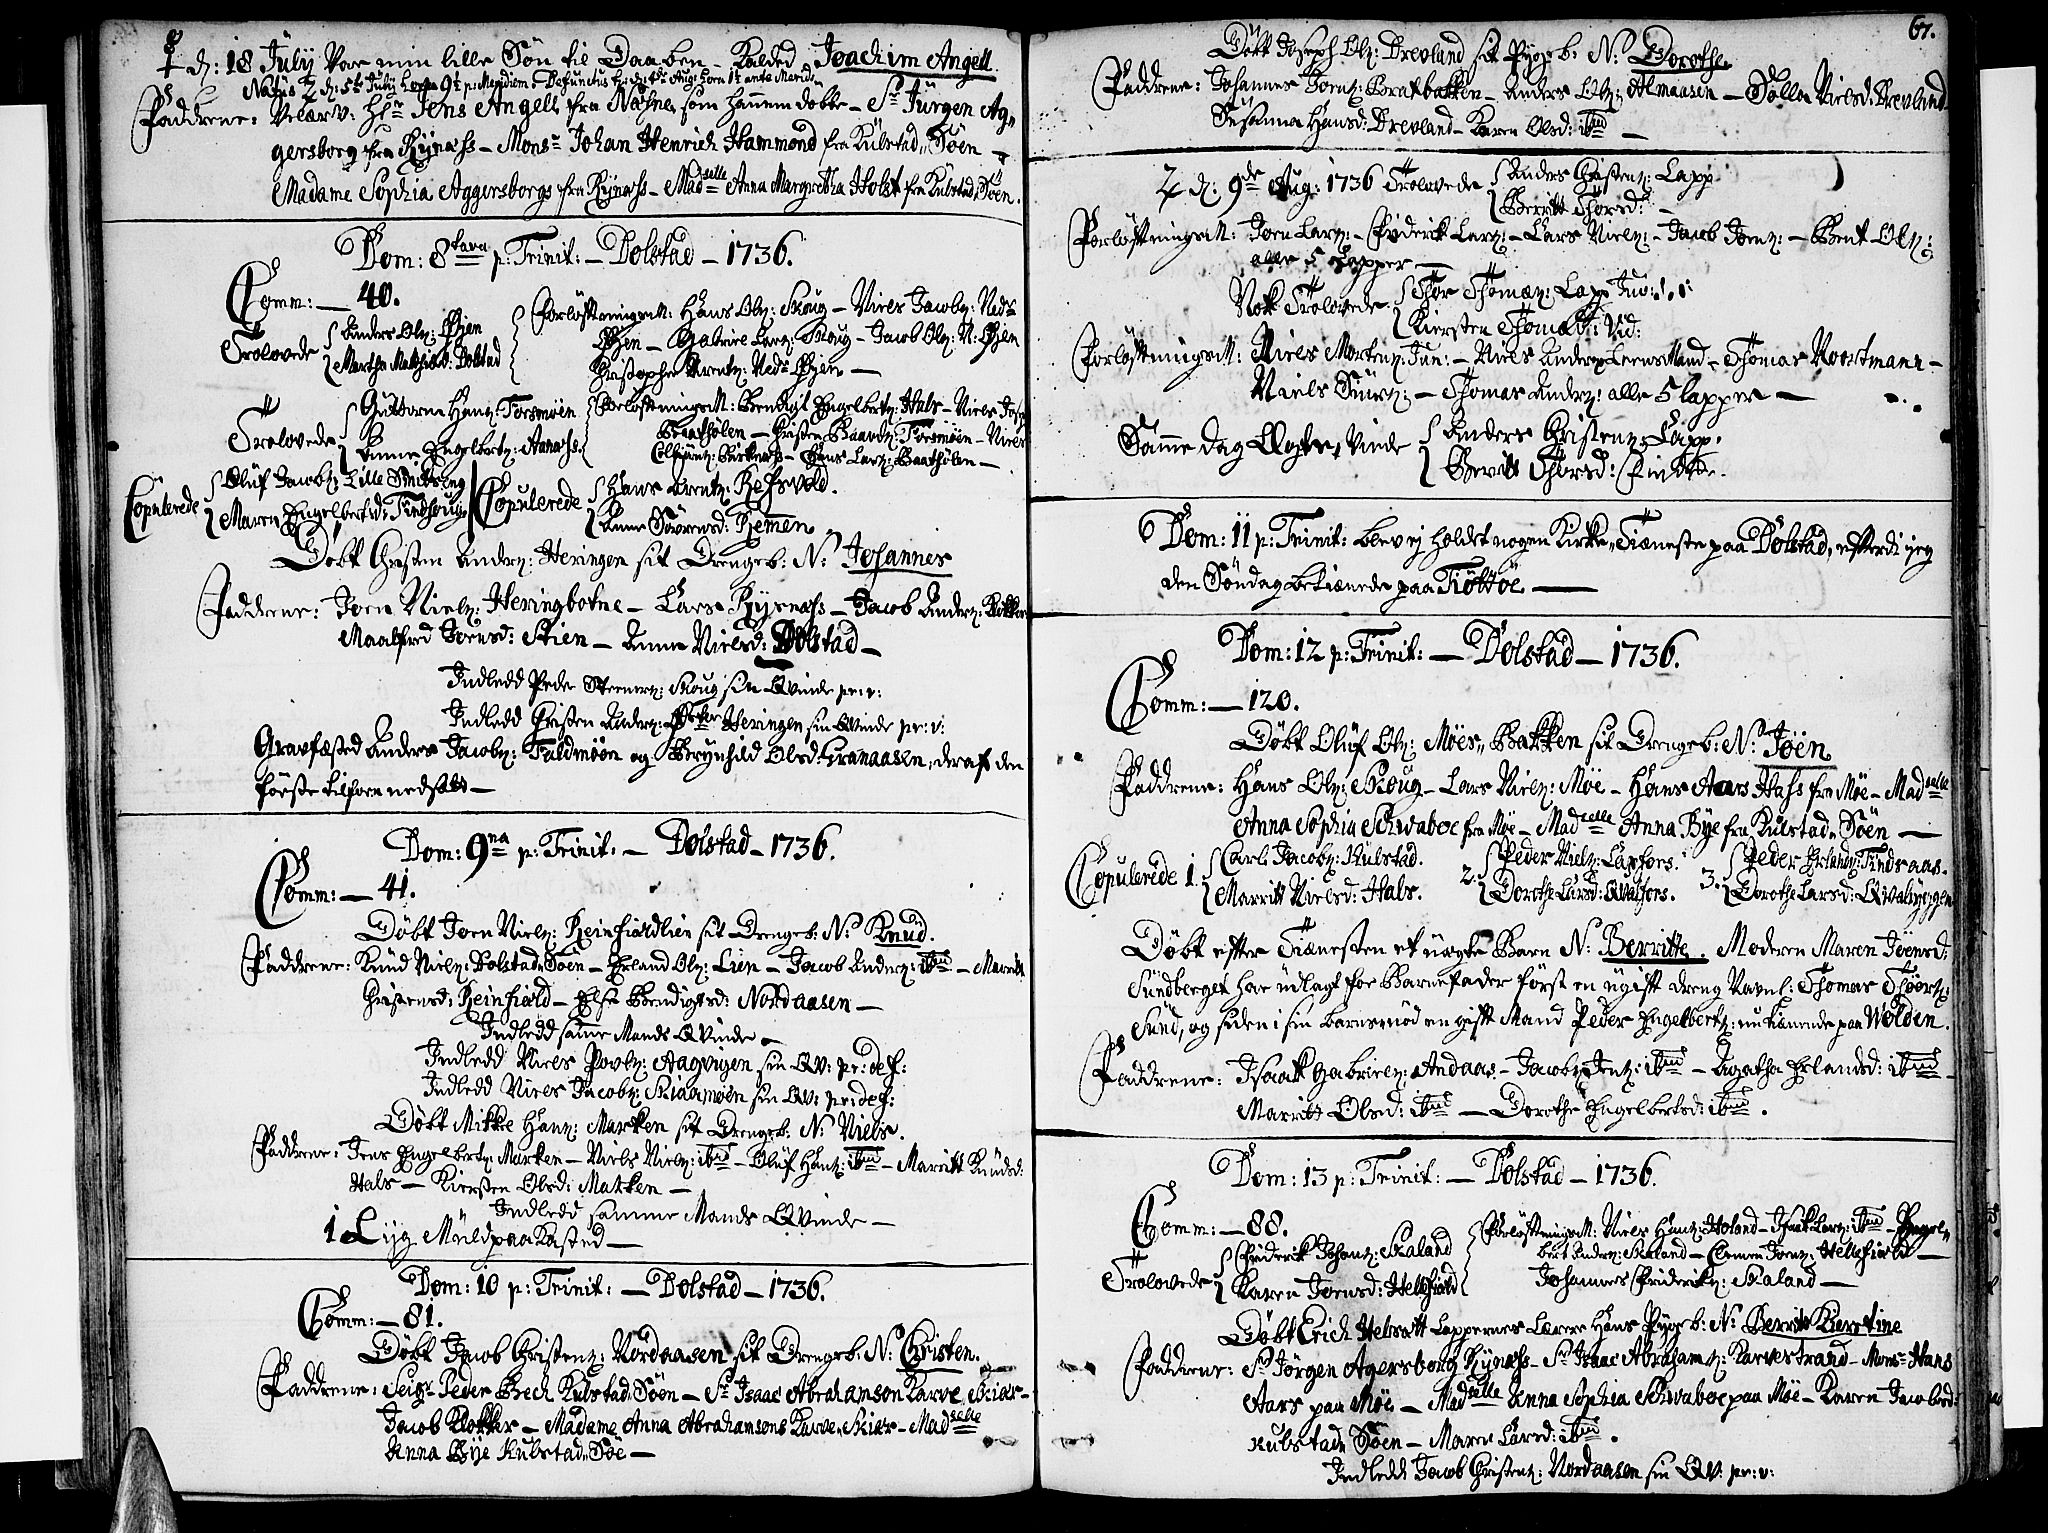 d: 18 July Var min lille Søn til Daaben – Kalded Joachim Angell.
Natus d: 5te July hora 9½ p: Meridiem – Defunctus
Faddrene: Velærv: Hr Jens Angell fra Næsne, som hannem døbte – Sr Jürgen Ag„
gersborg fra Rynæss – Monsr Johan Henrich Hammond fra Kulstad„Søen –
Madame Sophia Aggersborgs fra Rynæss – Madselle Anna Margretha Holst fra Kulstad„Søen.
Dom: 8tava p: Trinit: – Dolstad – 1736.
Comm: – 40.
Trolovede { Anders Olz: Øjen
{ Martha Mathisd: Dolstad
Forløftningsm: Hans Olz: Skoug – Niels Jacobz: Nedr
Øjen – Gabriel Larz: Skoug – Jacob Olz: N: Øjen
Christopher Arentz: Nedr Øjen –
Trolovede { Guttorm Hanz: Forsmoen
{ Anne Engelbertz: Aanæss.
Forløftningsm: Bendigt Engelbertz: Hals – Niels
Baatholen – Christen Baardz: Forsmoen – Niels
Birknæss – Hans Larz: Baatholen –
Copulerede { Oluf Jacobz: Lille Smitseng
{ Maren Engelbertsd: Findhoug
Copulerede { Hans Arentz: Refsvold.
{ Anne Sørensd: Remen
Døbt Christen Anderz: Heringen sit Drengeb: N: Johannes
Faddrene: Joen Nielz: Heringbotne – Lars Rynæss – Jacob Anderz: Klokker
Maalfred Joensd: Stien – Anne Nielsd: Dolstad –
Indledd Peder Steenerz: Skoug sin Qvinde pr: v:
Indledd Christen Anderz: Heringen sin Qvinde pr: v:
Gravfæsted Anders Jacobz: Fuldmoen og Brynhild Olsd: Granaasen, deraf den
første tilforn nedsatt –
Dom: 9na p: Trinit: – Dolstad – 1736.
Comm: – 41.
Døbt Joen Nielz: Reinfiordlien sit Drengeb: N: Knud.
Faddrene: Knud Nielz: Dolstad„Søen – Erland Olz: Lien – Jacob Anderz: ibid – Marritt
Christensd: Reinfiord – Else Bendigtsd: Nordaasen –
Indledd samme Mands Qvinde –
Indledd Niels Povlz: Aagvigen sin Qv: pr: def:
Indledd Niels Jacobz: Skiaamoen sin Qv: pr: def:
Døbt Mikkel Hanz: Marken sit Drengeb: N: Niels.
Faddrene: Jens Engelbertz: Marken – Niels Nielz: ibid – Oluf Hanz: ibid – Marritt Knudsd:
Hals – Kiersten Olsd: Marken –
Indledd samme Mands Qvinde –
1 Lijg Muld paakasted –
Dom: 10 p: Trinit: – Dolstad – 1736.
Comm: – 81.
Døbt Jacob Christenz: Nordaasen sit Drengeb: N: Christen.
Faddrene: Seigr Peder Bech Kulstad„Søen – Sr Isaac Abrahamson Karve„Skier –
Jacob Klokker – Madame Anna Abrahamsons Karve„Skier – Madselle
Anna Bye Kulstad„Søe –
67.
Døbt Joseph Olz: Drevland sit Pygeb: N: Dorothe.
Faddrene: Johannes Joenz: Bratbakken – Anders Olz: Almaasen – Sølla Nielsd: Drevland
Susanna Hansd: Drevland – Karen Olsd: ibid –
d: 9de Aug: 1736 Trolovede { Anders Christenz: Lapp
{ Berritt Thorsd: –
Forløftningsm: Joen Larz: – Friderik Larz: – Lars Nielz: – Jacob Joenz: – Bent Olz:
alle 5 Lapper –
Nok Trolovede { Thor Thomæz: Lapp Juv:
{ Kiersten Thomæd: Vid:
Forløftningsm: Niels Mortenz: Jun: – Niels Anderz: Leensmand – Thomas Noortmanr –
Niels Siurz: – Thomas Anderz: alle 5 Lapper –
Samme dag Ægte„Viede { Anders Christenz: Lapp.
{ Beritt Thorsd: Finkke.
Dom: 11 p: Trinit: blev ej holdt nogen Kirke„Tiæneste paa Dolstad, efterdi jeg
den Søndag betiænede paa Tiøttøe –
Dom: 12 p: Trinit: – Dolstad – 1736.
Comm: – 120.
Døbt Oluf Olz: Møes„Bakken sit Drengeb: N: Joen
Faddrene: Hans Olz: Skoug – Lars Nielz: Møe – Hans Aars Hass fra Møe – Madselle
Anna Sophia Schvaboe fra Møe – Madselle Anna Bye fra Kulstad„Søen –
Copulerede 1. { Carl Jacobz: Kulstad.
{ Marritt Nielsd: Hals.
2. { Peder Nielz: Laxfors.
{ Dorothe Larsd: Qvalfors.
3. { Peder Erlandz: Tindraas.
{ Dorothe Larsd: Qvalryggen
Døbt efter Tiænesten et uægte Barn N: Berritte. Moderen Maren Joensd:
Sundberget har udlagt for Barnefader først en ugift dreng Navnl: Thomas Thoerz:
Sund, og siden i sin barnsnød en gift Mand Peder Engelbertz: nu tiænende paa Wolden.
Faddrene: Isaak Gabrielz: Andaas – Jacob Jenz: ibid – Agatha Erlandsd: ibid –
Marritt Olsd: ibid – Dorothe Engelbertsd: ibid.
Dom: 13 p: Trinit: – Dolstad – 1736.
Comm: – 88.
Trolovede { Friderik Johanz: Skaland
{ Karen Joensd: Hellfiord
Forløftningsm: Niels Hanz: Holand – Isak Larz: ibid – Engel„
bert Anderz: Skaland – Clemen Joenz: Hellefiord –
Johannes Friderikz: Skaland –
Døbt Erich Helsett Lappernes Lærer Hans Pygeb: N: Berrite Kierstine
Faddrene: Sr Jørgen Agersborg Rynæss – Sr Isaac Abrahamz: Karvestrand – Monsr Hans
Aars paa Møe – Madselle Anna Sophia Schvaboe paa Møe – Karen Jacobsd:
Kulstad„Søen – Maren Larsd: ibid.
Indledd Jacob Christenz: Nordaasen sin Qv: pr: v: